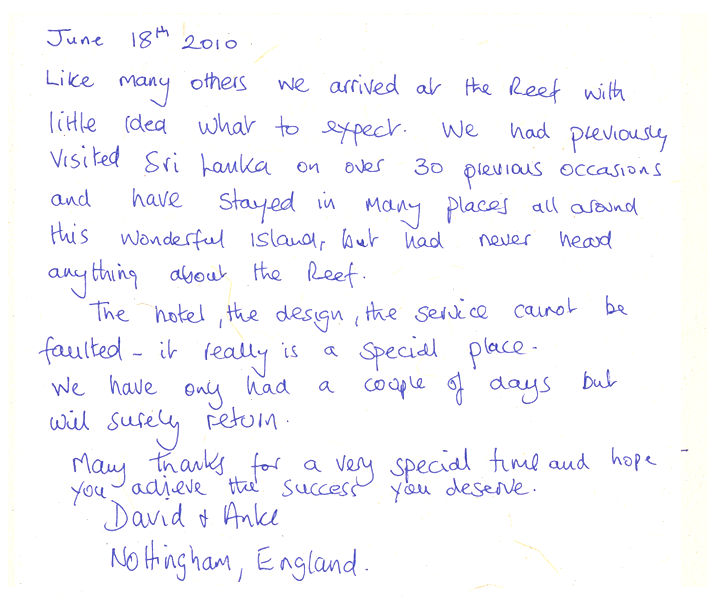 June 18th 2010.
Like many others we arrived at the Reef with
little idea what to expect. We had previously
visited Sri Lanka on over 30 previous occasions
and have stayed in many places all around
this wonderful island, but had never heard
anything about the Reef.
The hotel, the design, the service cannot be
faulted - it really is a special place.
We have only had a couple of days but
will surely return.
Many thanks for a very special time and hope -
you achieve the success you deserve.
David & Anke
Nottingham, England.